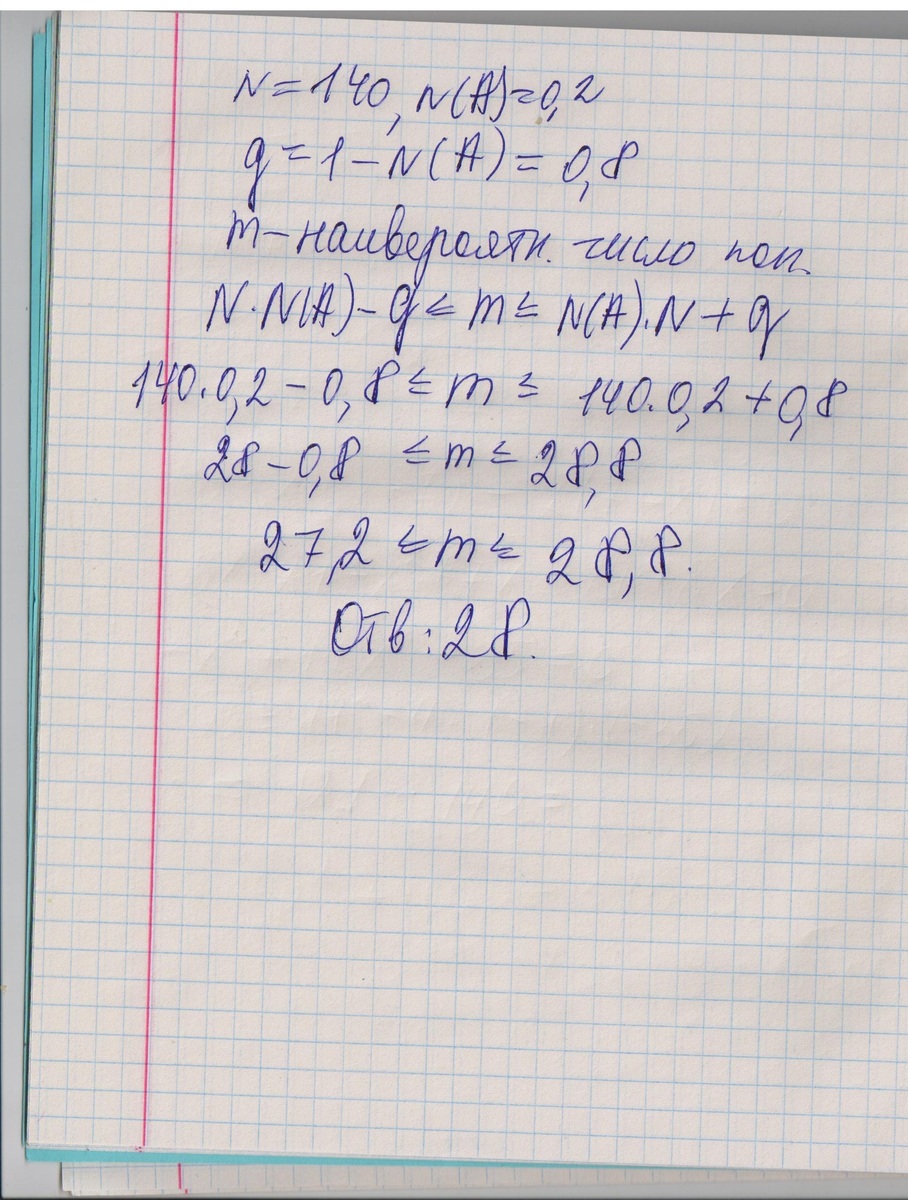 N=140, N(A)=0,2
q=1-N(A)=0,8
m-наивероятн. число поп.
N·N(A)-q≤m≤N(A)·N+q
140·0,2-0,8≤m≤140·0,2+0,8
28-0,8 ≤m≤28,8
27,2≤m≤28,8.
Отв:28.